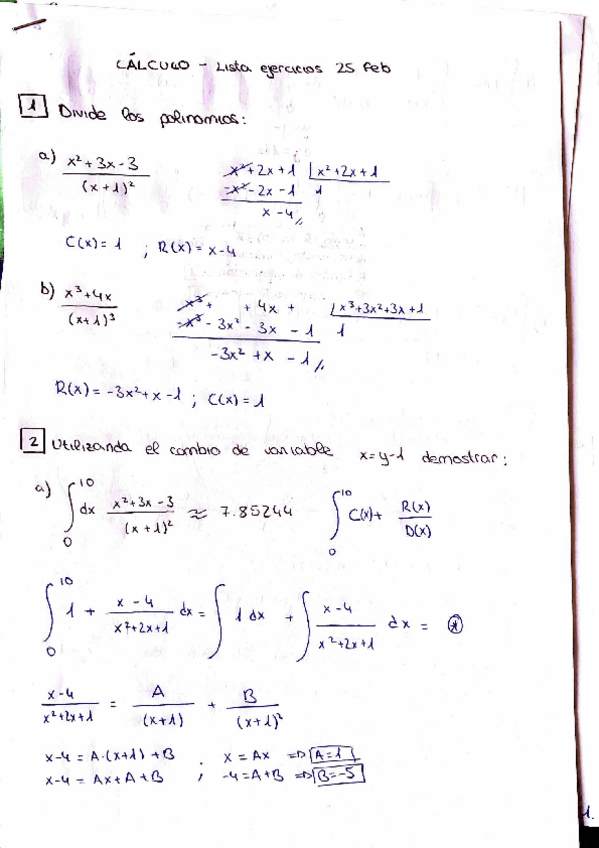 CÁLCULO - Lista ejercicios 25 Feb
1 Divide los polinomios:
a) x²+3x-3 / (x+1)²
x²+2x+1 | x²+2x+1
-x²-2x-1 1
x-4//
C(x)=1 ; R(x)=x-4
b) x³+4x / (x+1)³
x³+ +4x+ | x³+3x²+3x+1
-x³-3x²-3x-1 1
-3x²+x-1//
R(x)=-3x²+x-1 ; C(x)=1
2 Utilizanda el cambio de variable x=y-1 demostrar:
a) ∫₀¹⁰ dx x²+3x-3 / (x+1)² ≈ 7.85244 ∫₀¹⁰ C(x)+ R(x)/D(x)
∫₀¹⁰ 1 + x-4 / x²+2x+1 dx = ∫ 1 dx + ∫ x-4 / x²+2x+1 dx = ⊛
x-4 / x²+2x+1 = A / (x+1) + B / (x+1)²
x-4 = A·(x+1)+B ; x = Ax => A=1
x-4 = Ax+A+B ; -4=A+B => B=-5
1.